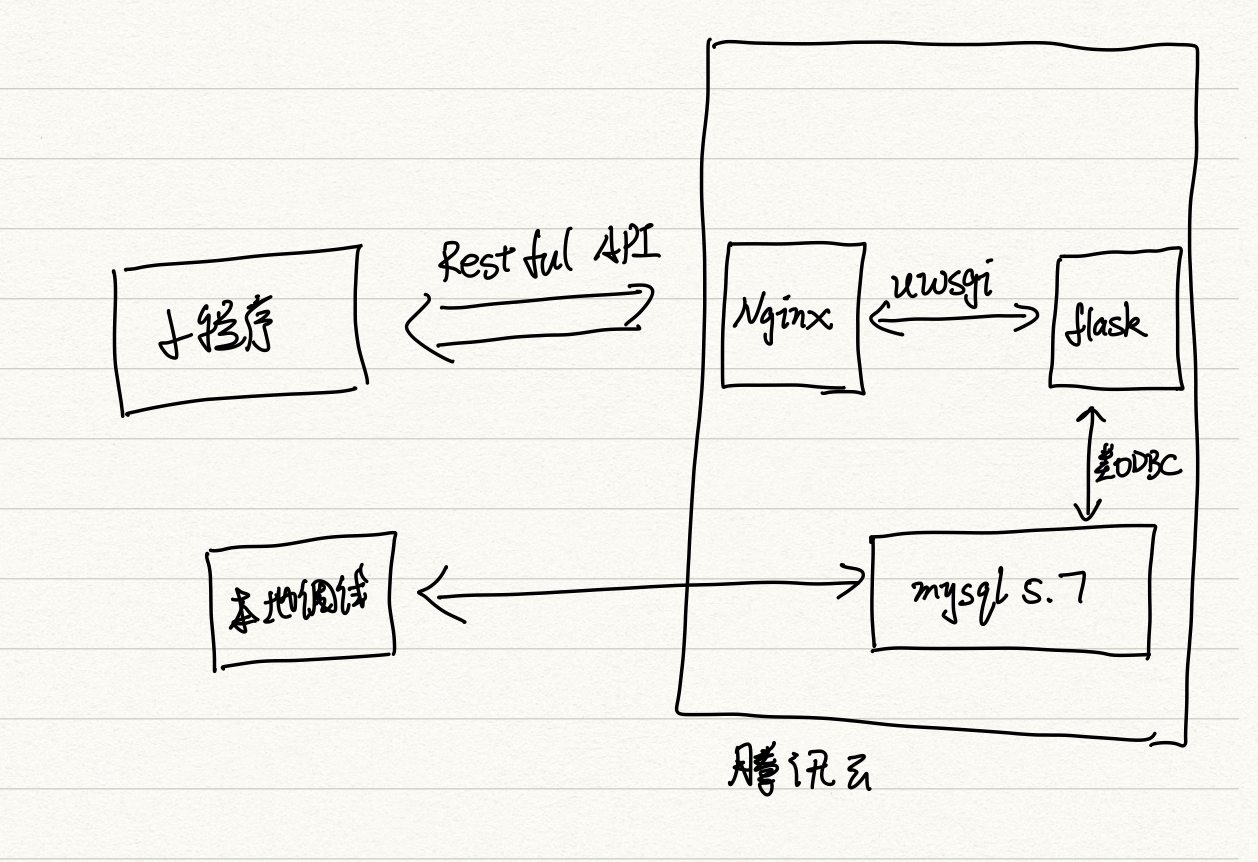 Restful API
小程序
Nginx
uwsgi
flask
ODBC
本地调试
mysql 5.7
腾讯云